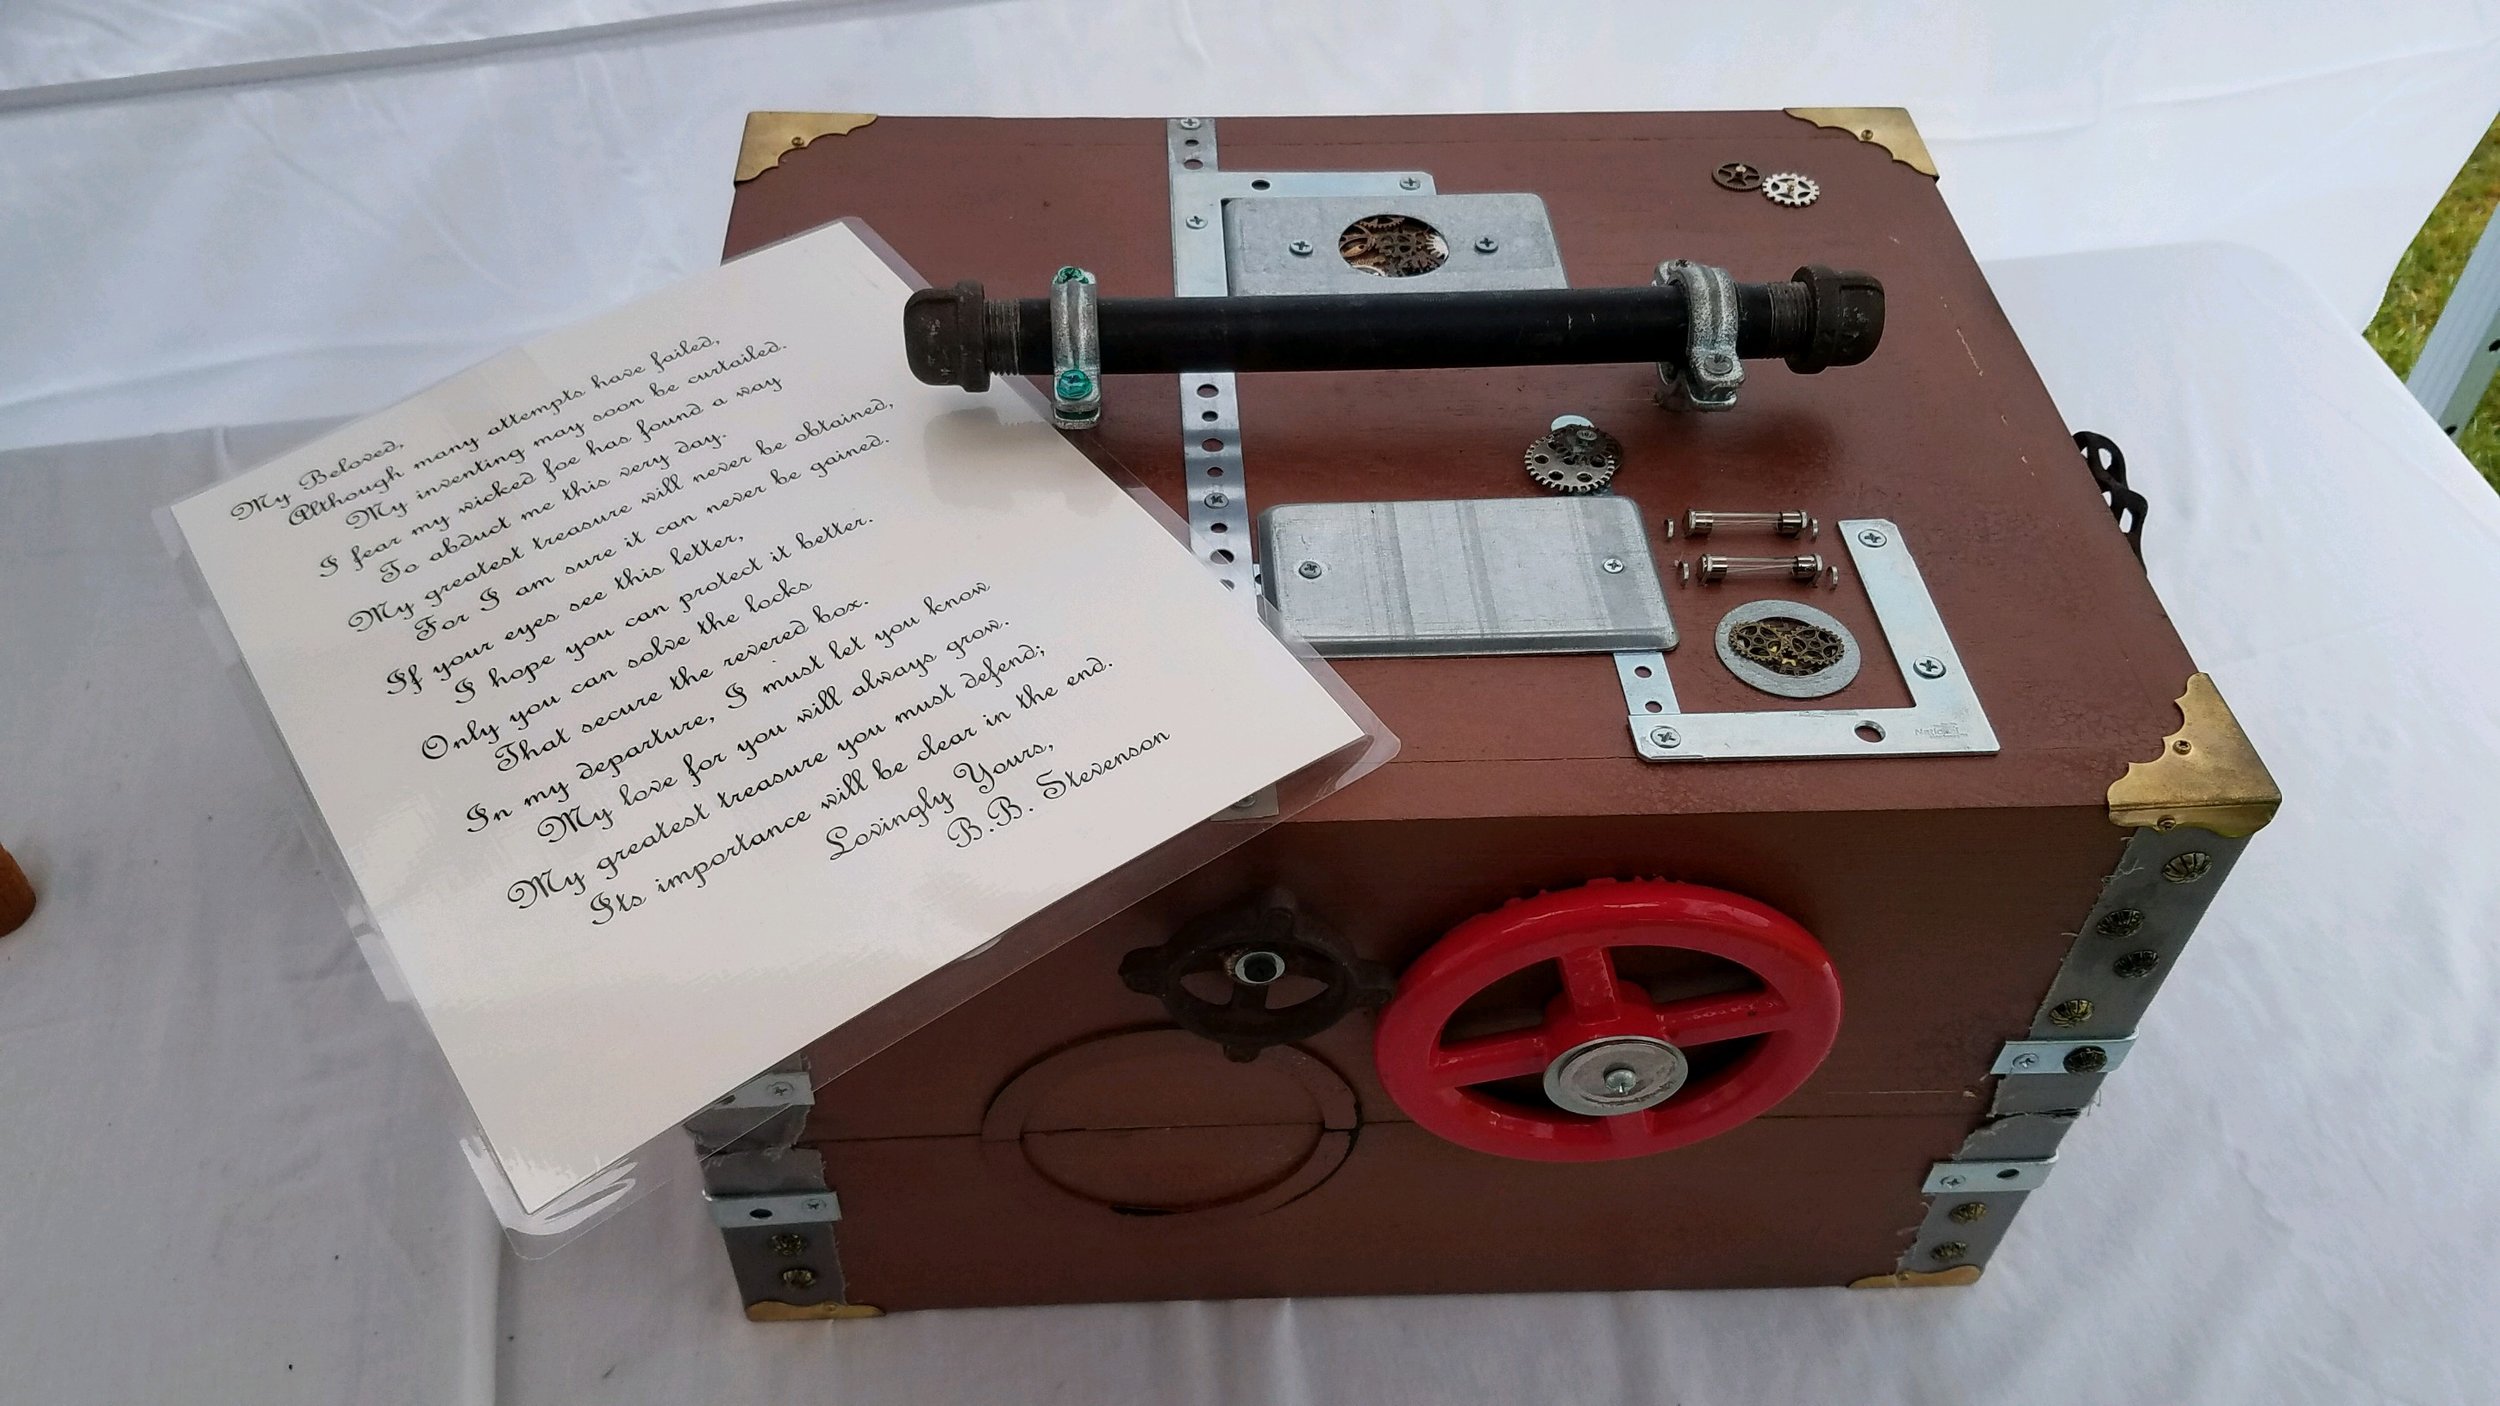 My Beloved,
Although many attempts have failed,
My inventing may soon be curtailed.
I fear my wicked foe has found a way
To abduct me this very day.
My greatest treasure will never be obtained,
For I am sure it can never be gained.
If your eyes see this letter,
I hope you can protect it better.
Only you can solve the locks
That secure the revered box.
In my departure, I must let you know
My love for you will always grow.
My greatest treasure you must defend;
Its importance will be clear in the end.
Lovingly Yours,
B.B. Stevenson